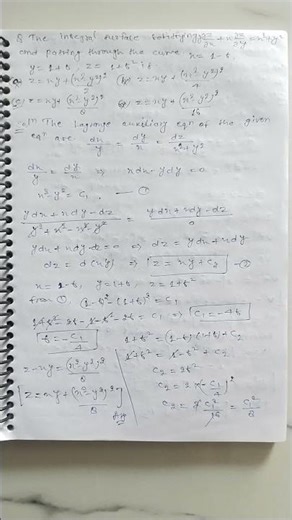 Q The Integral surface satisfying y ∂z/∂x + x ∂z/∂y = x²+y²
and passing through the curve x = 1-t
y = 1+t, z = 1+t² is
z = xy + (x²-y²)²/8 (b) z = xy + (x²-y²)²/4
z = xy + (x²-y²)²/ z = xy + (x²-y²)²/16
The Lagrange auxiliary eqn of the given
eqn are dx/y = dy/x = dz/x²+y²
dx/y = dy/x ⇒ xdx - ydy = 0
x² - y² = C₁ — ①
ydx + xdy - dz / y² + x² - x² - y² = ydx + xdy - dz / 0
ydx + xdy - dz = 0 ⇒ dz = ydx + xdy
dz = d(xy) ⇒ z = xy + C₂ — ②
x = 1-t, y = 1+t, z = 1+t²
from ①, (1-t)² - (1+t)² = C₁
1+t² - 2t - 1 - t² - 2t = C₁ ⇒ C₁ = -4t
t = -C₁/4
1+t² = (1-t)(1+t) + C₂
1+t² = 1-t² + C₂
C₂ = 2t²
C₂ = 2(-C₁/4)²
C₂ = 2C₁²/16 = C₁²/8
z - xy = (x²-y²)²/8
z = xy + (x²-y²)²/8